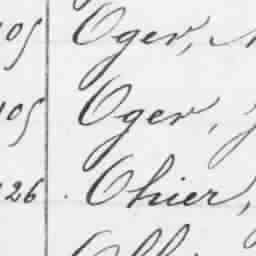 105 Oger,
105 Oger,
126 Ohier,